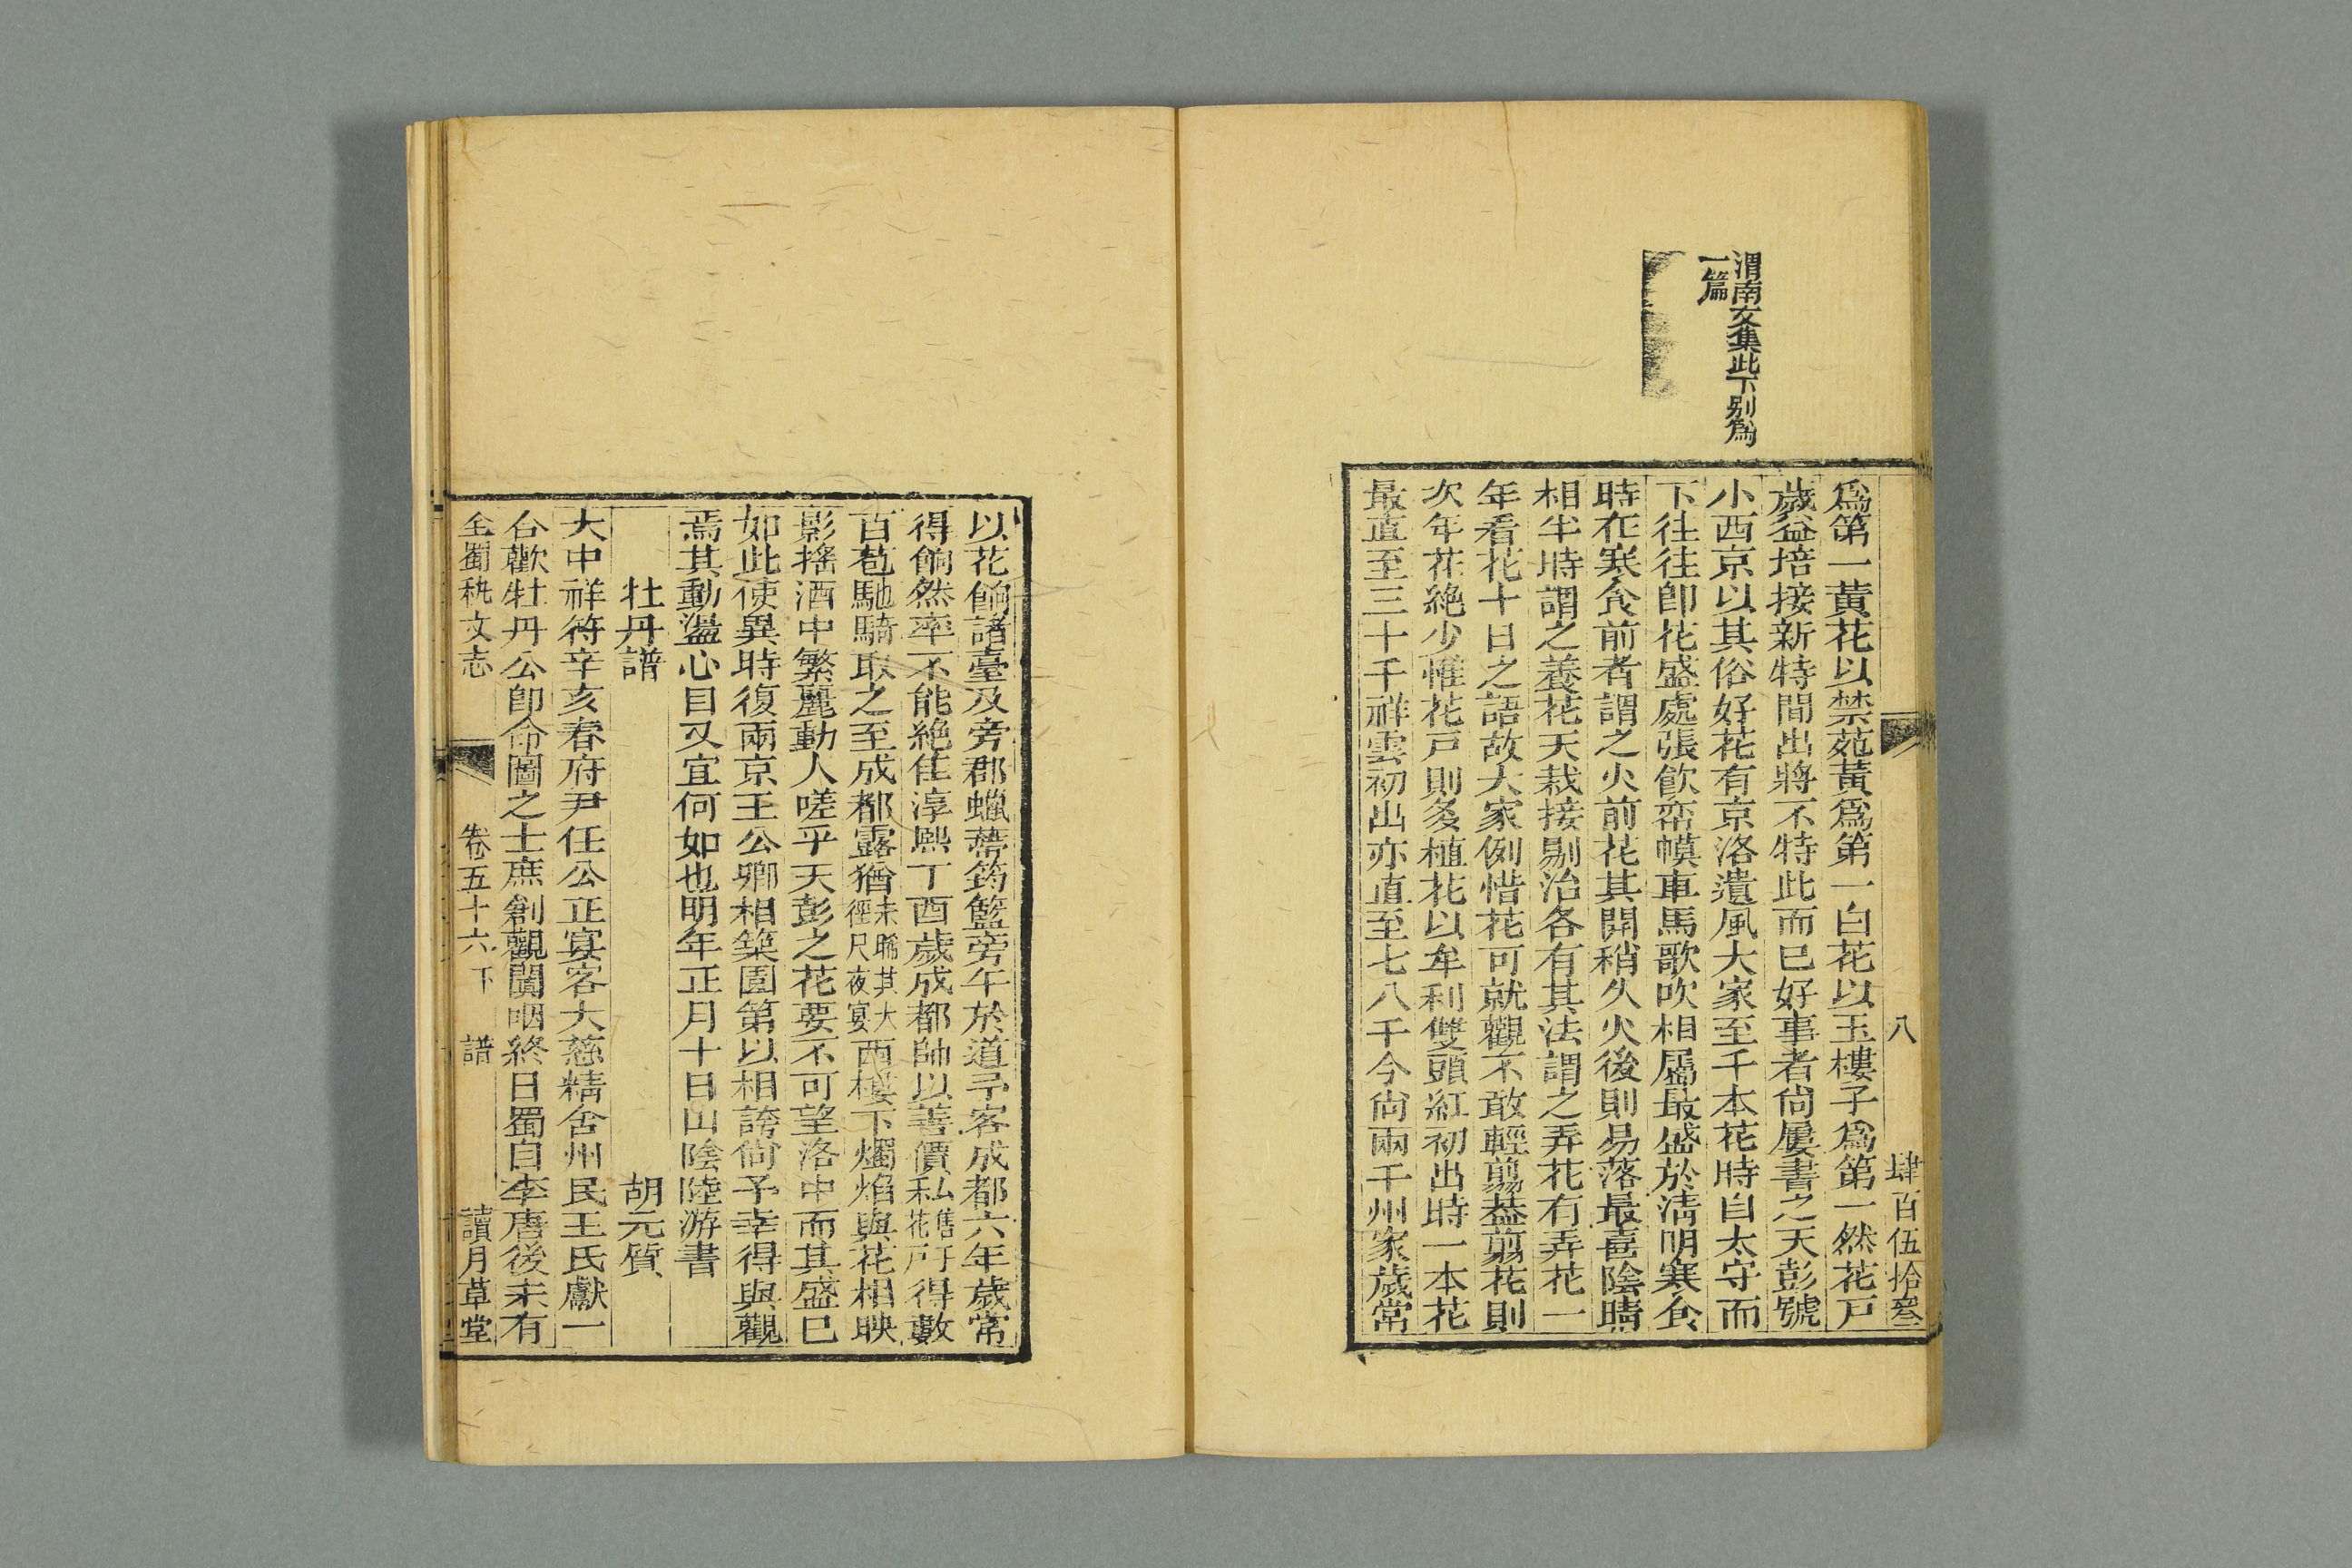 渭南文集此下別爲
一篇
八
肆百伍拾叄
爲第一黃花以禁苑黃爲第一白花以玉樓子爲第一然花戸
歲益培接新特間出將不特此而已好事者尙屢書之天彭號
小西京以其俗好花有京洛遺風大家至千本花時自太守而
下往往卽花盛處張飮帟幙車馬歌吹相屬最盛於淸明寒食
時在寒食前者謂之火前花其開稍久火後則易落最喜陰晴
相半時謂之養花天栽接剔治各有其法謂之弄花有弄花一
年看花十日之語故大家例惜花可就觀不敢輕翦葢翦花則
次年花絶少惟花戸則多植花以牟利雙頭紅初出時一本花
最直至三十千祥雲初出亦直至七八千今尙兩千州家歲常
以花餉諸臺及旁郡蠟蔕筠籃旁午於道予客成都六年歲常
得餉然率不能絶佳淳熙丁酉歲成都帥以善價私售于花戸得數
百苞馳騎取之至成都露猶未晞其大徑尺夜宴西樓下燭焰與花相映
影搖酒中繁麗動人嗟乎天彭之花要不可望洛中而其盛已
如此使異時復兩京王公卿相築園第以相誇尙予幸得與觀
焉其動盪心目又宜何如也明年正月十日山陰陸游書
牡丹譜
胡元質
大中祥符辛亥春府尹任公正宴客大慈精舍州民王氏獻一
合歡牡丹公卽命圖之士庶創觀闐咽終日蜀自李唐後未有
全蜀秇文志
卷五十六下
譜
讀月草堂